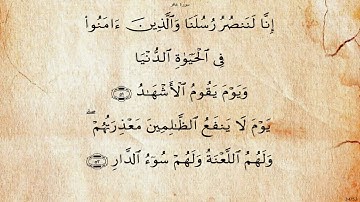 إِنَّا لَنَنصُرُ رُسُلَنَا وَالَّذِينَ ءَامَنُوا۟
فِى الْحَيَوٰةِ الدُّنْيَا
وَيَوْمَ يَقُومُ الْأَشْهَٰدُ ﴿٥١﴾
يَوْمَ لَا يَنفَعُ الظَّٰلِمِينَ مَعْذِرَتُهُمْ ۖ
وَلَهُمُ اللَّعْنَةُ وَلَهُمْ سُوٓءُ الدَّارِ ﴿٥٢﴾